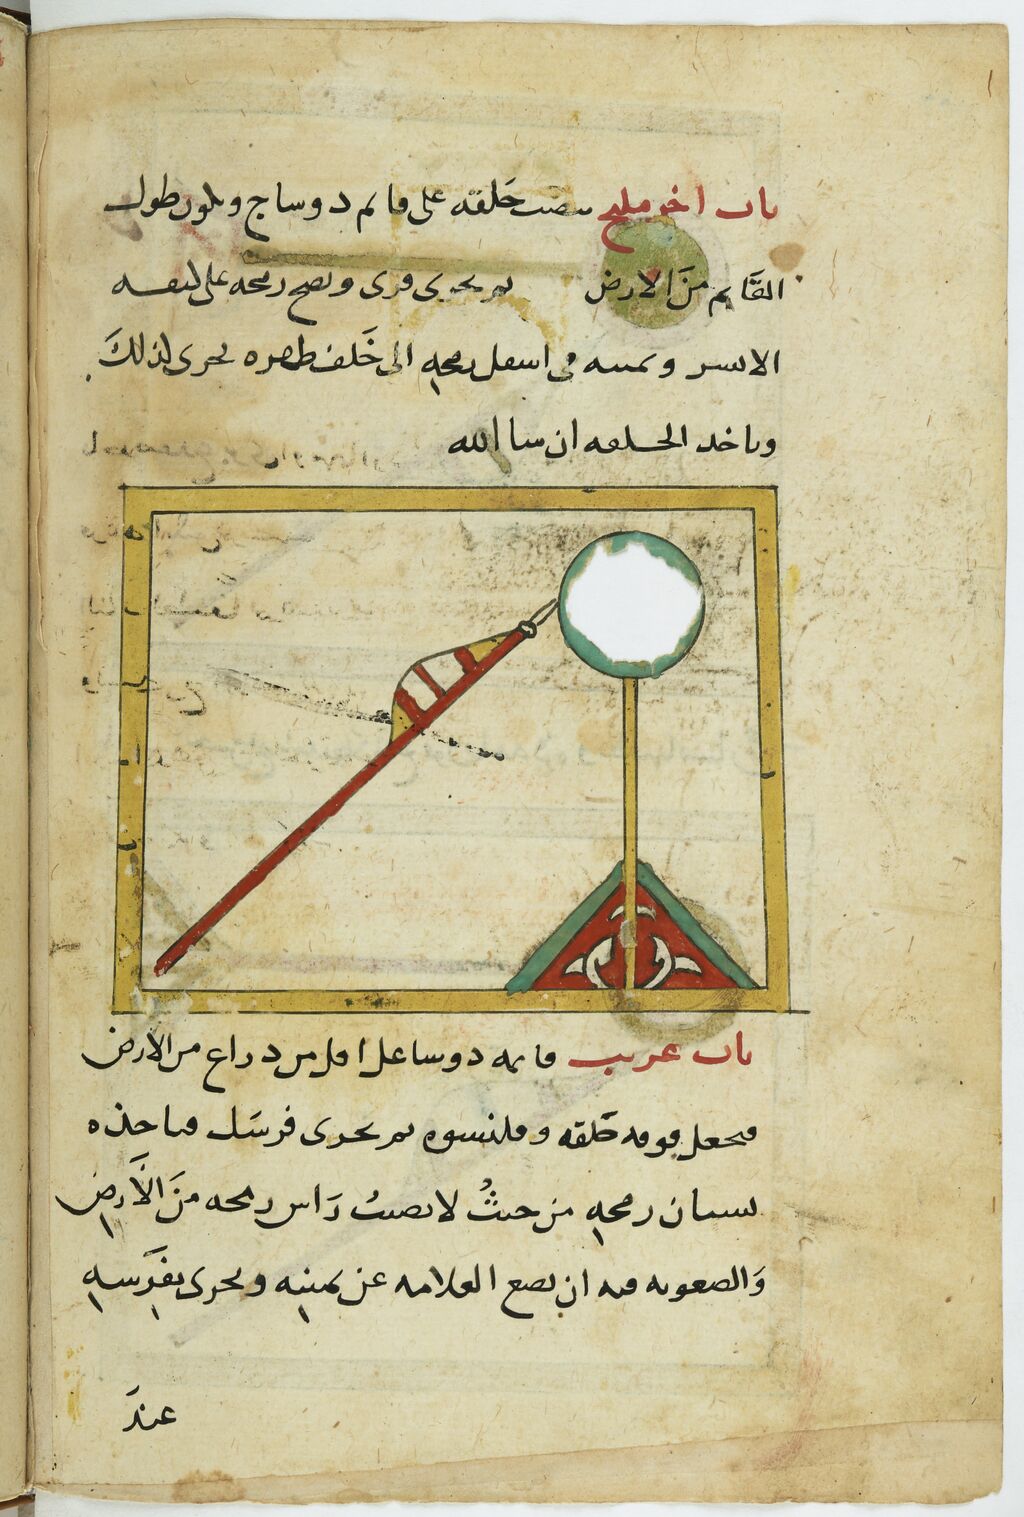 باب اخر مليح تنصب حَلقه على قائم دوساج ويكون طول
القَايم منَ الارض ثم يجرى فرسه ويضع رمحه على كتفه
الايسر ويمينه فى اسفل رمحهِ الى خَلف ظهره يجرى كذلكَ
وياخد الحلقه ان سا الله
باب غريب قايمه دوساعل اقل من دراع من الارض
فيجعل فوقه حَلقه وقلنسوه ثم يجرى فرسَك فياخذه
بسنان رمحهِ من حيثُ لا يصيبُ رَاس رمحه منَ الاَرضِ
وَالصعوبه فيه ان يضع العلامه عَن يمينِه ويجرى بفَرَسهِ
عندَ